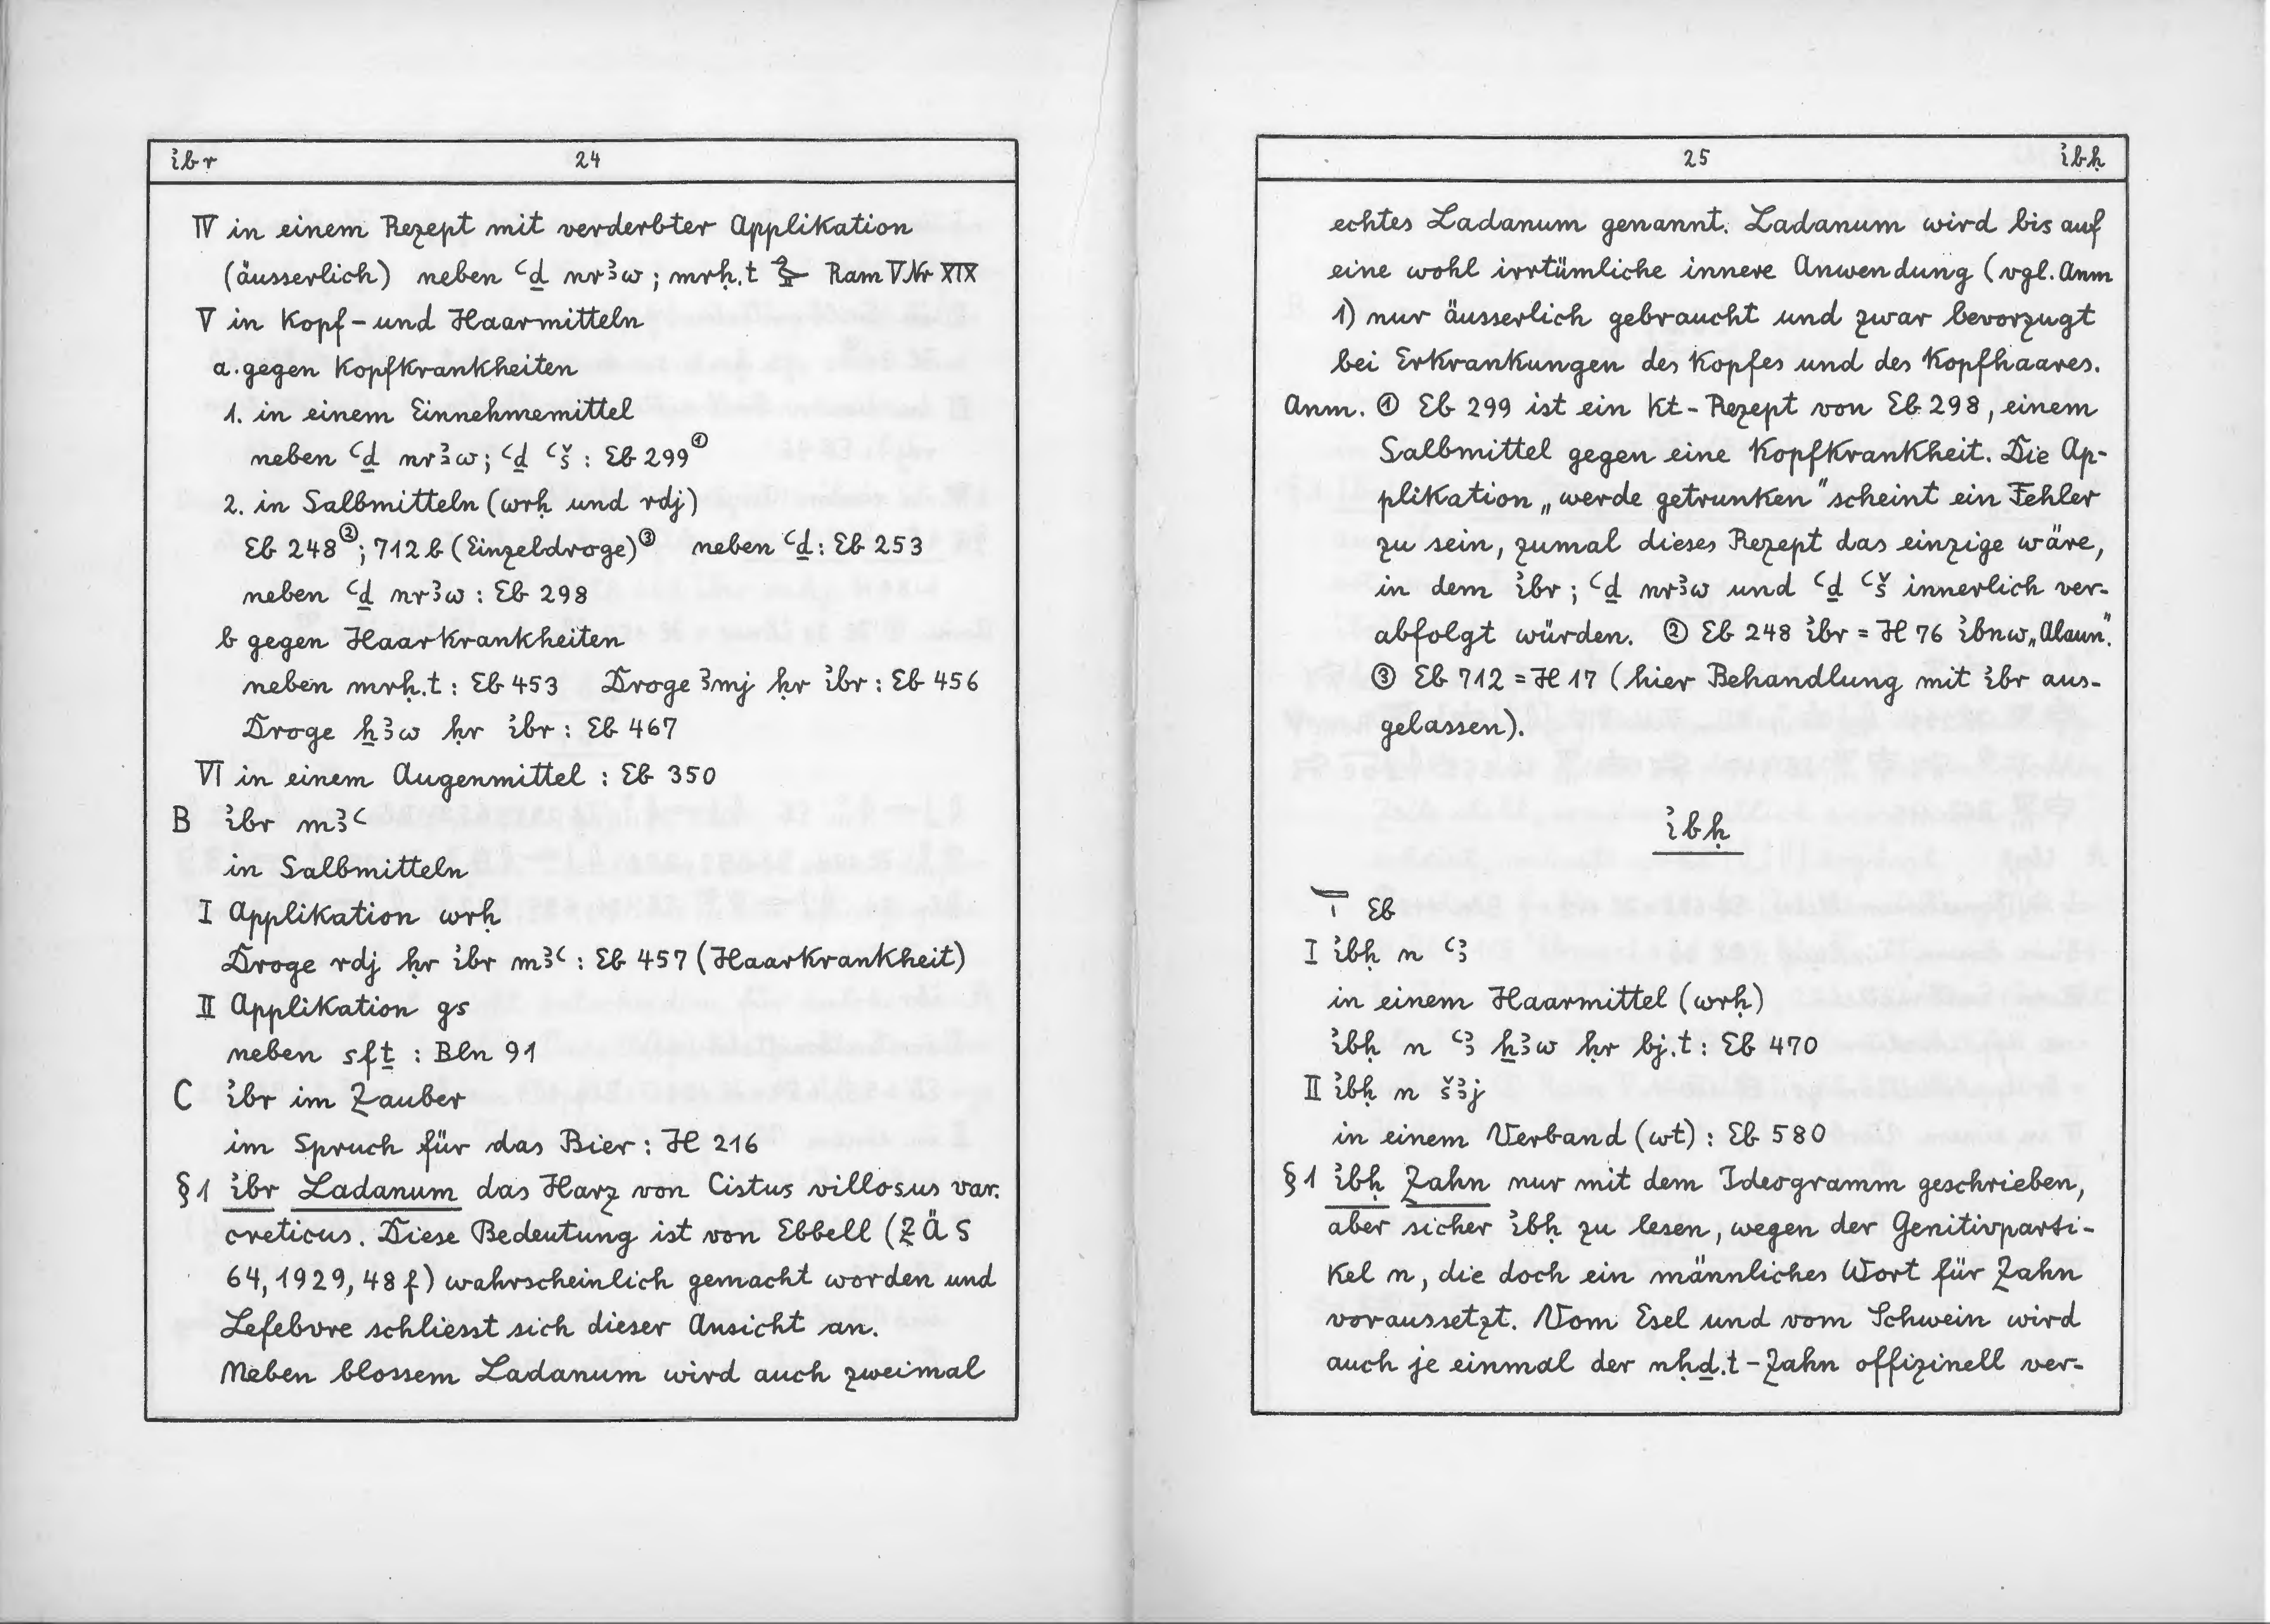 ỉbr 24
IV in einem Rezept mit verderbter Applikation
(äusserlich) neben ꜥḏ nrꜣw ; mrḥ.t Ram V Nr XIX
V in Kopf- und Haarmitteln
a. gegen Kopfkrankheiten
1. in einem Einnehmemittel
neben ꜥḏ nrꜣw ; ꜥḏ ꜥš : Eb 299①
2. in Salbmitteln (wrḥ und rdj)
Eb 248②; 712 b (Einzeldroge)③ neben ꜥḏ : Eb 253
neben ꜥḏ nrꜣw : Eb 298
b gegen Haarkrankheiten
neben mrḥ.t : Eb 453 Droge ꜣmj ḥr ỉbr : Eb 456
Droge ẖꜣw ḥr ỉbr : Eb 467
VI in einem Augenmittel : Eb 350
B ỉbr mꜣꜥ
in Salbmitteln
I Applikation wrḥ
Droge rdj ḥr ỉbr mꜣꜥ : Eb 457 (Haarkrankheit)
II Applikation gs
neben sfṯ : Bln 91
C ỉbr im Zauber
im Spruch für das Bier : H 216
§ 1 ỉbr Ladanum das Harz von Cistus villosus var.
creticus. Diese Bedeutung ist von Ebbell (ZÄS
64, 1929, 48 f) wahrscheinlich gemacht worden und
Lefebvre schliesst sich dieser Ansicht an.
Neben blossem Ladanum wird auch zweimal
25 ỉbḥ
echtes Ladanum genannt. Ladanum wird bis auf
eine wohl irrtümliche innere Anwendung (vgl. Anm
1) nur äusserlich gebraucht und zwar bevorzugt
bei Erkrankungen des Kopfes und des Kopfhaares.
Anm. ① Eb 299 ist ein kt-Rezept von Eb 298, einem
Salbmittel gegen eine Kopfkrankheit. Die Ap-
plikation „werde getrunken" scheint ein Fehler
zu sein, zumal dieses Rezept das einzige wäre,
in dem ỉbr ; ꜥḏ nrꜣw und ꜥḏ ꜥš innerlich ver-
abfolgt würden. ② Eb 248 ỉbr = H 76 ỉbnw „Alaun".
③ Eb 712 = H 17 (hier Behandlung mit ỉbr aus-
gelassen).
ỉbḥ
Eb
I ỉbḥ n ꜥꜣ
in einem Haarmittel (wrḥ)
ỉbḥ n ꜥꜣ ẖꜣw ḥr bj.t : Eb 470
II ỉbḥ n šꜣj
in einem Verband (wt) : Eb 580
§ 1 ỉbḥ Zahn nur mit dem Ideogramm geschrieben,
aber sicher ỉbḥ zu lesen, wegen der Genitivparti-
kel n, die doch ein männliches Wort für Zahn
voraussetzt. Vom Esel und vom Schwein wird
auch je einmal der nḥḏ.t-Zahn offizinell ver-